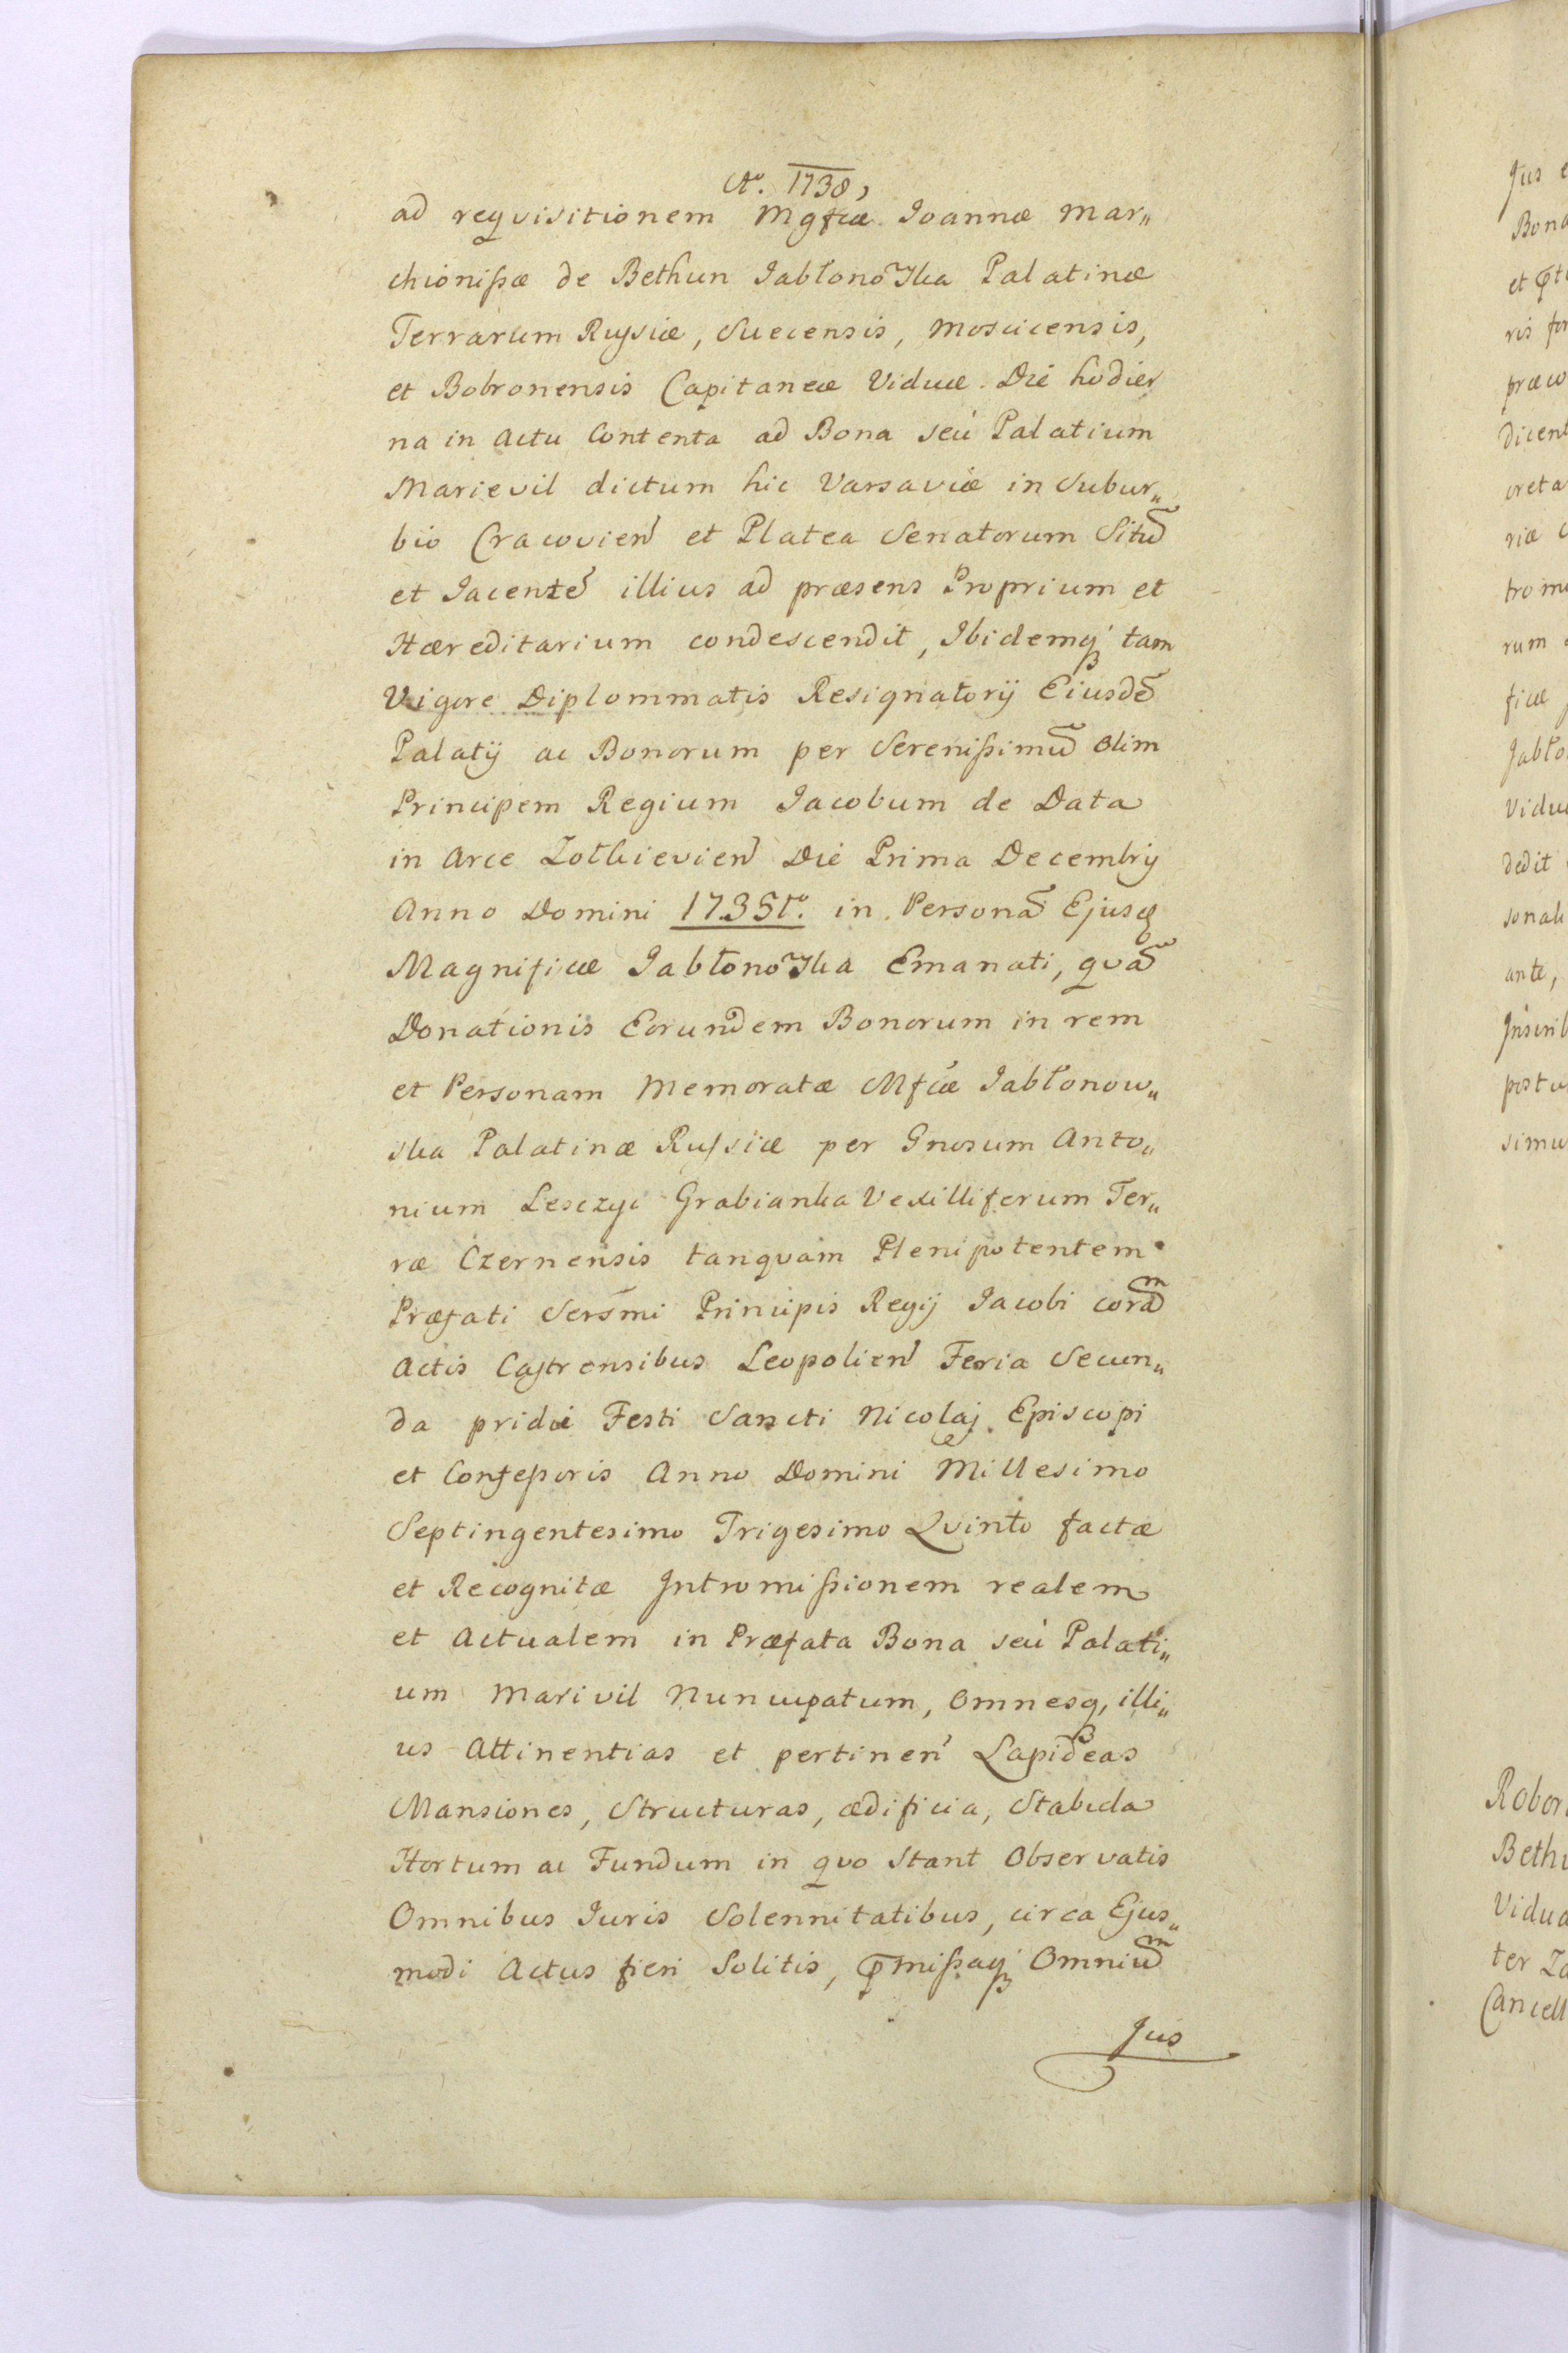 Aº. 1738,
ad reqvisitionem Mgfcæ Joannæ Mar„
chionißæ de Bethun Jabłonowska Palatinæ
Terrarum Russiæ, Suecensis, Moscicensis,
et Bobronensis Capitaneæ Viduæ. Die hodier
na in Actu Contenta ad Bona seú Palatium
Marievil dictum hic Varsaviæ in Subur„
bio Cracovien̄ et Platea Senatorum Sitū
et Jacentē illius ad præsens Proprium et
Hæreditarium condescendit, Ibidemq́ꝫ tam
Vigore Diplommatis Resignatorÿ Eiusdē
Palatÿ ac Bonorum per Serenißimū Olim
Principem Regium Jacobum de Data
in Arce Zołkievien̄ Die Prima Decembrÿ
Anno Domini 1735tº. in Personā Ejusꝗ
Magnificæ Jabłonowska Emanati, qvā
Donationis Eorundem Bonorum in rem
et Personam Memoratæ Mfcæ Jabłonow„
ska Palatinæ Russiæ per Gnosum Anto„
nium Lesczyc Grabianka Vexilliferum Ter„
ræ Czernensis tanqvam Plenipotentem
Præfati Sers̄mi Principis Regÿ Jacobi corām
Actis Castrensibus Leopolien̄ Feria Secun„
da pridie Festi Sancti Nicolaj Episcopi
et Confeßoris Anno Domini Millesimo
Septingentesimo Trigesimo Qvinto factæ
et Recognitæ Intromißionem realem
et Actualem in Præfata Bona seú Palati„
um Marivil Nuncupatum, Omnesq,ꝫ illi„
us Attinentias et pertinen̄ Lapideas
Mansiones, Structuras, ædificia, Stabula
Hortum ac Fundum in qvo Stant Observatis
Omnibus Juris Solennitatibus, circa Ejus„
modi Actus fieri Solitis, p̄mißaq́ꝫ Omniūm
Jus
Jus
Bona
ris
dicent
rum
ficæ
Jabło
Vidu
dedit
sonali
ante,
Inscrib
postu
simu
Robor
Bethu
Vidua
ter Za
Cancell